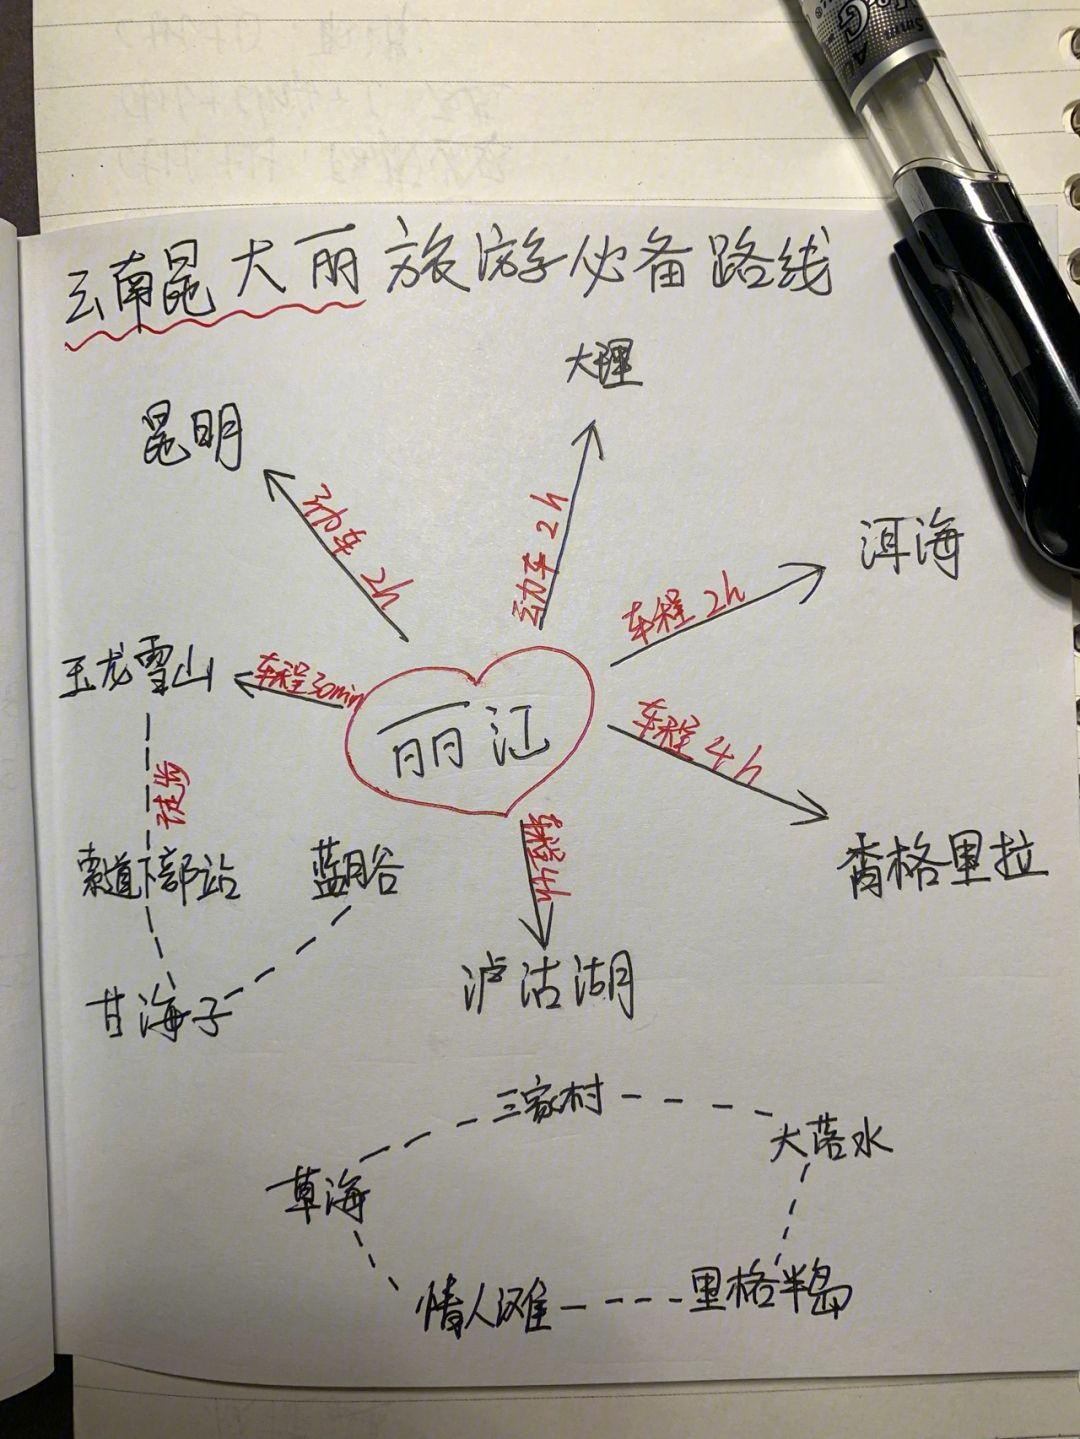 云南昆大丽旅游必备路线
大理
昆明
动车 2h
动车 2h
洱海
车程 2h
玉龙雪山
车程30min
丽江
车程 4h
徒步
索道下部站
蓝月谷
车程4h
香格里拉
甘海子
泸沽湖
三家村
大落水
草海
里格半岛
情人滩